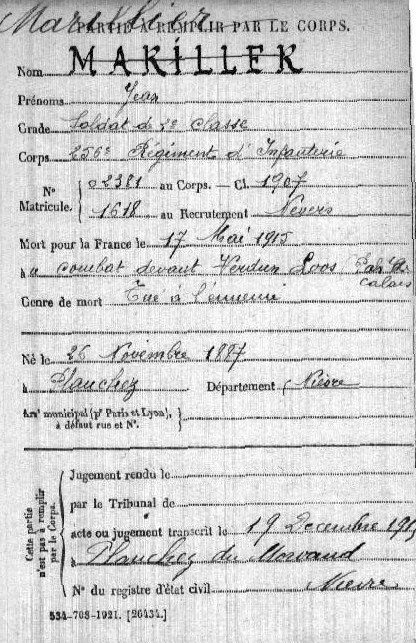 Marillier
PARTIE À REMPLIR PAR LE CORPS.
Nom MARILLER
Prénoms Jean
Grade Soldat de 2e Classe
Corps 256e Régiment d'Infanterie
N° Matricule. { 02381 au Corps. — Cl. 1907
1618 au Recrutement Nevers
Mort pour la France le 17 Mai 1915
à u combat devant Verdun Loos Pas de Calais
Genre de mort Tué à l'ennemi
Né le 26 Novembre 1887
à Planchez Département Nièvre
Arr' municipal (p' Paris et Lyon), à défaut rue et N°. }
Cette partie n'est pas à remplir par le Corps. {
Jugement rendu le
par le Tribunal de
acte ou jugement transcrit le 19 Décembre 191
à Planchez du Morvand
N° du registre d'état civil Nièvre
534-708-1921. [26434.]